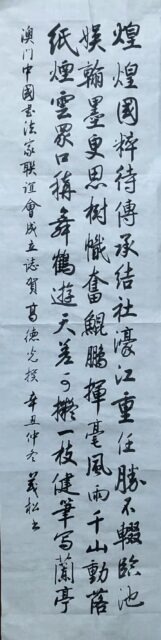 煌煌國粹待傳承結社濠江重任勝不輟臨池
娱翰墨更思樹幟奮鯤鵬揮毫風雨千山動落
紙煙雲眾口稱舞鶴遊天差可擬一枝健筆写蘭亭
澳门中國书法家联誼會成立誌賀 葛德光撰 辛丑仲冬 義松书